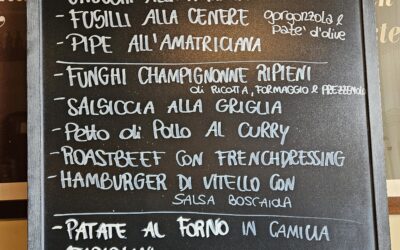 - FUSILLI ALLA CENERE gorgonzola e
patè d'olive
- PIPE ALL'AMATRICIANA
- FUNGHI CHAMPIGNONNE RIPIENI
di RICOTTA, FORMAGGIO e PREZZEMOLO
- SALSICCIA ALLA GRIGLIA
- Petto di Pollo AL CURRY
- ROASTBEEF CON FRENCHDRESSING
- HAMBURGER DI VITELLO CON
SALSA BOSCAIOLA
- PATATE AL FORNO IN CAMICIA